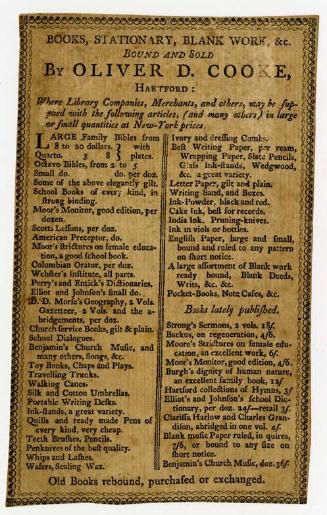 BOOKS, STATIONARY, BLANK WORK, &c.
BOUND AND SOLD
BY OLIVER D. COOKE,
HARTFORD:
Where Library Companies, Merchants, and others, may be sup-
plied with the following articles, (and many others) in large
or small quantities at New-York prices.
LARGE Family Bibles from
8 to 20 dollars. } with
Quarto. 3 8 } plates.
Octavo Bibles, from 2 to 5
Small do. do. per doz.
Some of the above elegantly gilt.
School Books of every kind, in
strong binding.
Moor's Monitor, good edition, per
dozen.
Scotts Lessons, per doz.
American Preceptor, do.
Moor's strictures on female educa-
tion, a good school book.
Columbian Orator, per doz.
Webster's Institute, all parts.
Perry's and Entick's Dictionaries.
Elliot and Johnson's small do.
D. D. Morse's Geography, 2 Vols.
Gazetteer, 2 Vols. and the a-
bridgements, per doz.
Church service Books, gilt & plain.
School Dialogues.
Benjamin's Church Music, and
many others, Songs, &c.
Toy Books, Chaps and Plays.
Travelling Trunks.
Walking Canes.
Silk and Cotton Umbrellas.
Portable Writing Desks.
Ink-stands, a great variety.
Quills and ready made Pens of
every kind, very cheap.
Teeth Brushes, Pencils.
Penknives of the best quality.
Whips and Lashes.
Wafers, Sealing Wax.
Ivory and dressing Combs.
Best Writing Paper, per ream,
Wrapping Paper, Slate Pencils,
Glass Ink-stands, Wedgwood,
&c. a great variety.
Letter Paper, gilt and plain.
Writing Sand, and Boxes.
Ink-Powder, black and red.
Cake Ink, best for records.
India Ink. Pruning-knives.
Ink in viols or bottles.
English Paper, large and small,
bound and ruled to any pattern
on short notice.
A large assortment of Blank work
ready bound, Blank Deeds,
Writs, &c. &c.
Pocket-Books, Note Cases, &c.
Books lately published.
Strong's Sermons, 2 vols. 18s.
Backus, on regeneration, 4/6.
Moore's Strictures on female edu-
cation, an excellent work, 6s.
Moor's Monitor, good edition, 4/6.
Burgh's dignity of human nature,
an excellent family book, 12s
Hartford collections of Hymns, 3s
Elliot's and Johnson's school Dic-
tionary, per doz. 24s—retail 3s.
Clarissa Harlow and Charles Gran-
dison, abridged in one vol. 4s.
Blank music Paper ruled, in quires,
7/6, or bound to any size on
short notice.
Benjamin's Church Music, doz. 36s.
Old Books rebound, purchased or exchanged.